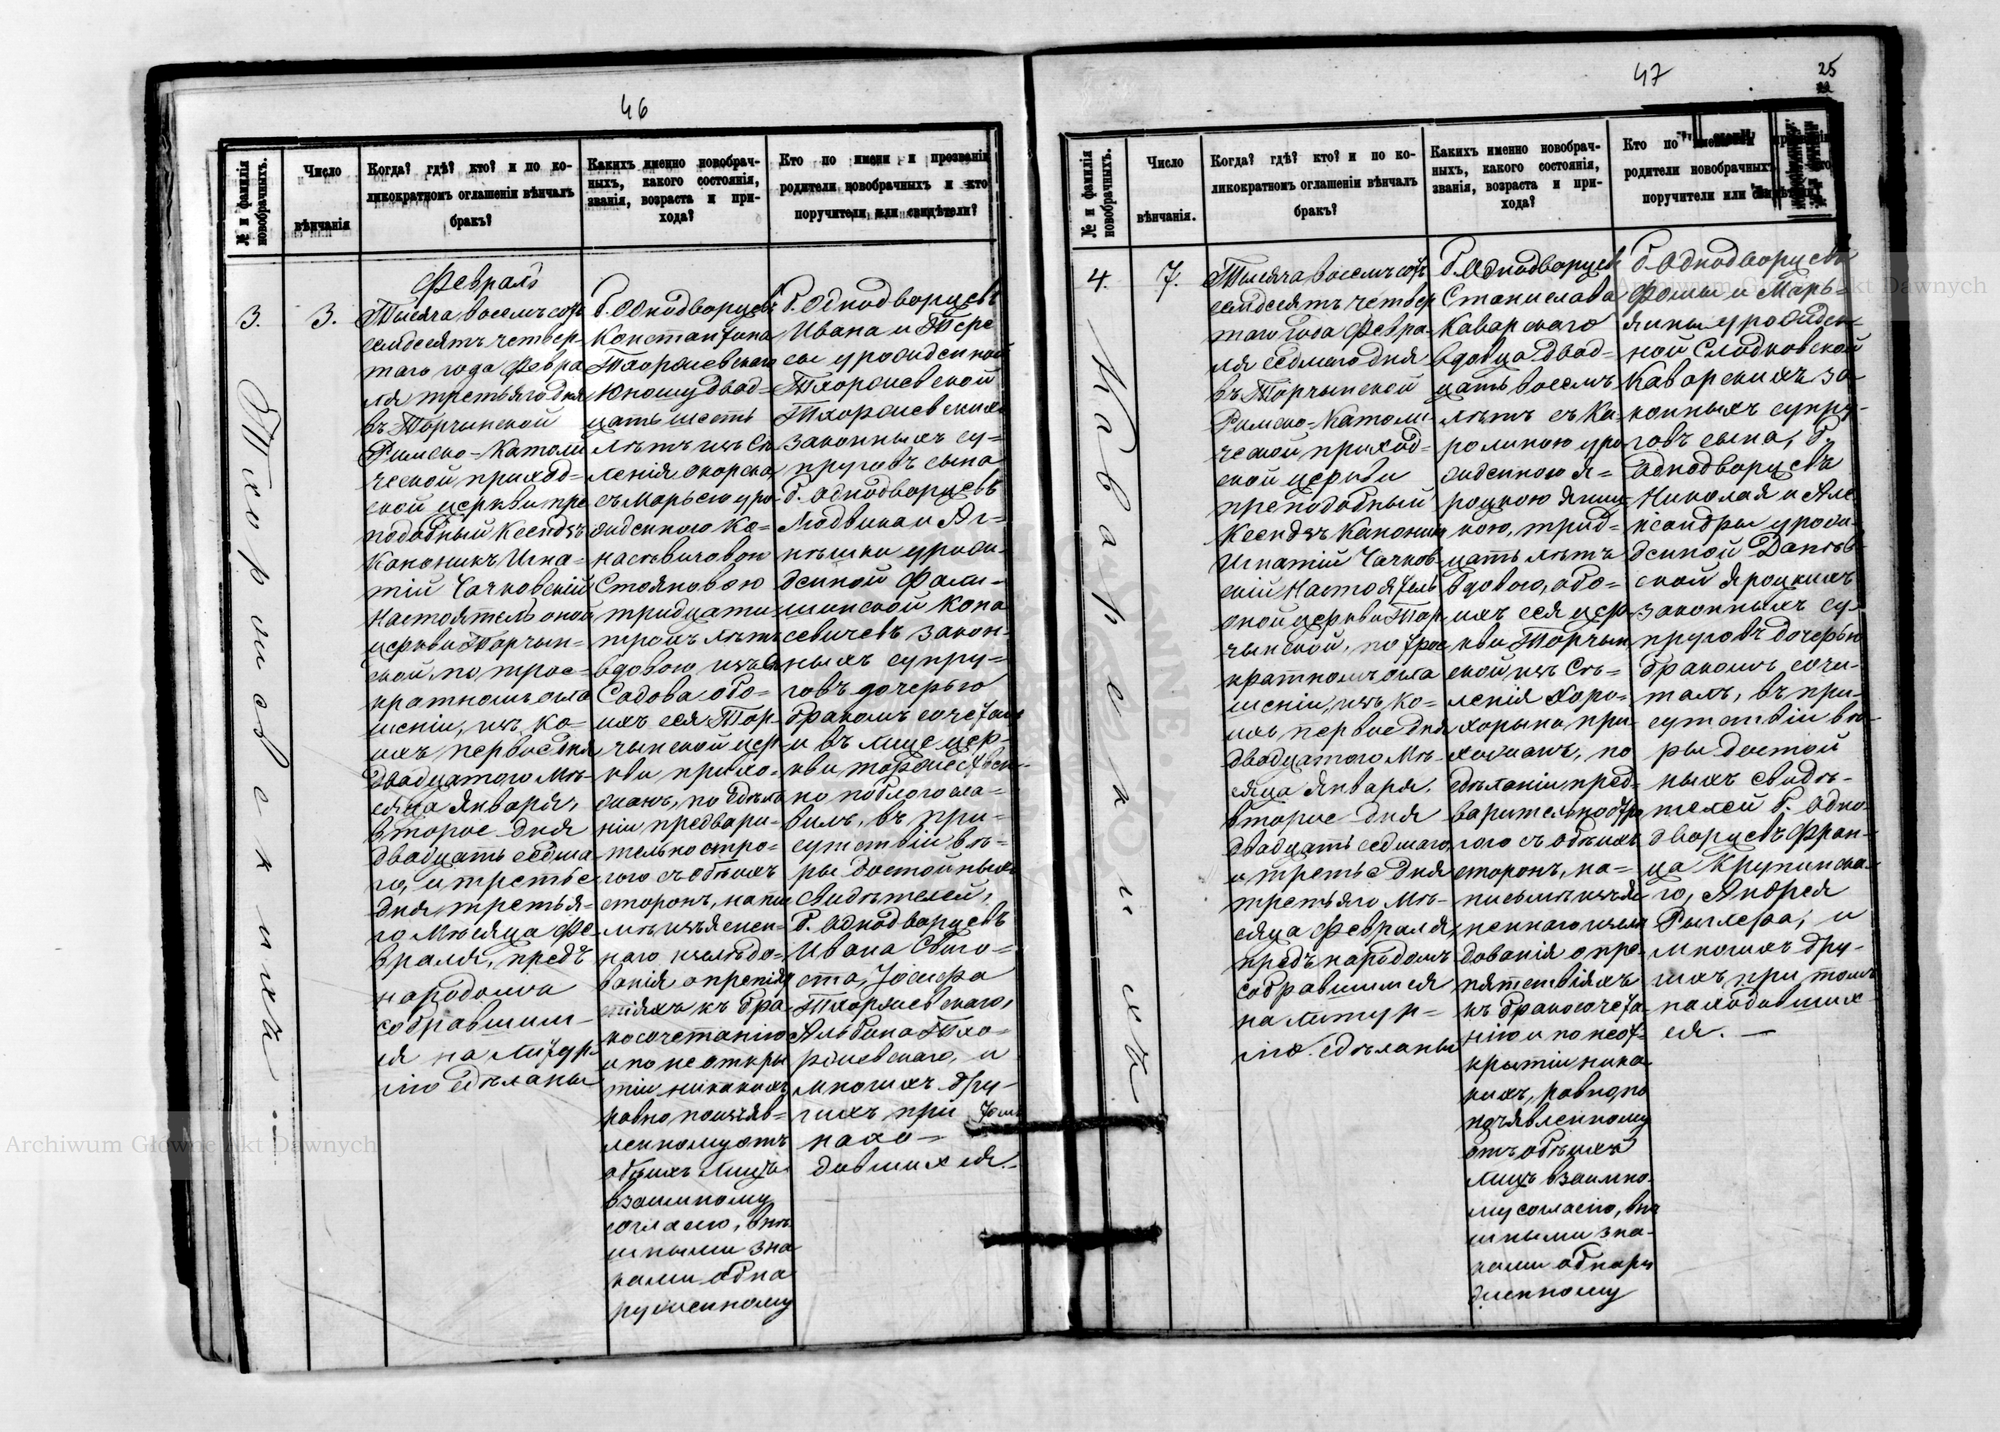 46
№ и фамилія новобрачныхъ.
Число
вѣнчанія
Когда? гдѣ? кто? и по ко-
ликократномъ оглашеніи вѣнчалъ
бракъ?
Какихъ именно новобрач-
ныхъ, какого состоянія,
званія, возраста и при-
хода?
Кто по имени и прозванію
родители новобрачныхъ и кто
поручители или свидѣтели?
3.
3.
Февраль
Тысяча восемьсотъ
семдесятъ четвер-
таго года Февра
ля третьяго дня
въ Торчинской
Римско-Католи
ческой приход-
ской церкви пре
подобный Ксендзъ
Каноникъ Игна-
тій Чачковскій
Настоятель оной
церкви Торчин-
ской по трое-
кратномъ огла
шеніи, изъ ко-
ихъ первое дня
двадцатого Мѣ-
сяца Января,
второе дня
двадцать седма
го, и третье
дня третья-
го Мѣсяца Фе-
враля, предъ
народомъ
собравшим-
ся на Литур-
гію сдѣланы
Б. Однодворцевъ
Константина
Тхоржевскаго
Юношу двад-
цать шесть
лѣтъ изъ Се
ленія
съ Марьею уро
жденною Ко-
насевичовою
Стояновою
тридцати
трехъ лѣтъ
вдовою, изъ
Садова обо-
ихъ сея Тор-
чинской цер
кви прихо-
жанъ, по сдѣла
ніи предвари-
тельно стро-
гого съ обѣихъ
сторонъ, на пи
смѣ изъяснен-
наго изслѣдо-
ванія о препят
ствіяхъ къ бра-
косочетанію
и по не откры
тіи никакихъ
равно по изъяв-
ленному отъ
обѣихъ Лицъ
взаимному
согласію, внѣ
шными зна
ками обна
руженному
Б. Однодворцевъ
Ивана и Тере
сы урожденной
Тхоржевской
Тхоржевскихъ
законныхъ су-
пруговъ сына
Б. Однодворцевъ
Людвика и Аг-
нѣшки урож-
денной Фали-
шевской Кона
севичевъ закон-
ныхъ супру-
говъ дочерью
бракомъ сочеталъ
и въ лице цер-
кви торжествен-
но поблагосла-
вилъ, въ при-
сутствіи вѣ-
ры достойныхъ
Свидѣтелей,
Б. Однодворцевъ
Ивана
Іосифа
Тхоржевскаго,
Альбина Тхо-
ржевскаго, и
многихъ дру-
гихъ при томъ
нахо-
дившихся.
Тхоржевскихъ
47
25
№ и фамилія новобрачныхъ.
Число
вѣнчанія.
Когда? гдѣ? кто? и по ко-
ликократномъ оглашеніи вѣнчалъ
бракъ?
Какихъ именно новобрач-
ныхъ, какого состоянія,
званія, возраста и при-
хода?
Кто по
родители новобрачныхъ
поручители или
4.
7.
Тысяча восемьсотъ
семдесятъ четвер
таго года Февра-
ля седмаго дня
въ Торчинской
Римско-Католи-
ческой приход-
ской церкви
преподобный
Ксендзъ Каноникъ
Игнатій Чачков-
скій Настоятель
оной церкви Тор-
чинской, по трое
кратномъ огла
шеніи, изъ ко-
ихъ первое дня
двадцатого Мѣ-
сяца Января,
второе дня
двадцать седмаго,
и третье дня
третьяго Мѣ-
сяца Февраля,
предъ народомъ
собравшимся
на Литур-
гію. сдѣланы
Б. Однодворцевъ
Станислава
Каварскаго
вдовца двад-
цать восемъ
лѣтъ съ Ка-
ролиною уро
жденною Я-
роцкою
трид-
цать лѣтъ
вдовою, обо-
ихъ сея цер
кви Торчин
ской, изъ Се-
ленія Хоро-
хорына при-
хожанъ, по
сдѣланіи пред-
варительно стро
гого съ обѣихъ
сторонъ, на-
письмѣ изъяс
неннаго изслѣ
дованія о пре-
пятствіяхъ
къ бракосочета
нію и по неот-
крытіи ника
кихъ, равно по
изъявленному
отъ обѣихъ
Лицъ взаимно
му согласію, внѣ
шными зна-
ками обнару
женному
Б. Однодворцевъ
Фомы и Марь-
яны урожден-
ной Слодковской
Каварскихъ за-
конныхъ супру-
говъ сына, Б.
Однодворцевъ
Николая и Але
ксандры урож-
денной
Яроцкихъ
законныхъ су-
пруговъ дочерью
бракомъ соче-
талъ, въ при-
сутствіи вѣ-
ры достой
ныхъ свидѣ-
телей Б. Одно-
дворцевъ Фран-
ца Крупинска-
го, Андрея
и
многихъ дру-
гихъ при томъ
находивших-
ся. —
Каварскихъ
Archiwum Główne Akt Dawnych
Archiwum Główne Akt Dawnych